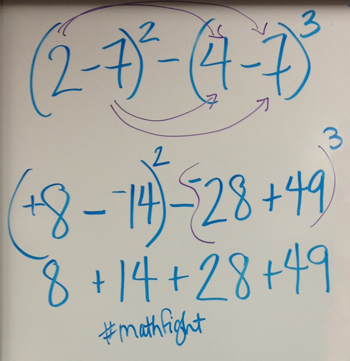 (2-7)² - (4-7)³
(+8 - ⁻14)² - (⁻28 + 49)³
8 + 14 + 28 + 49
#mathfight